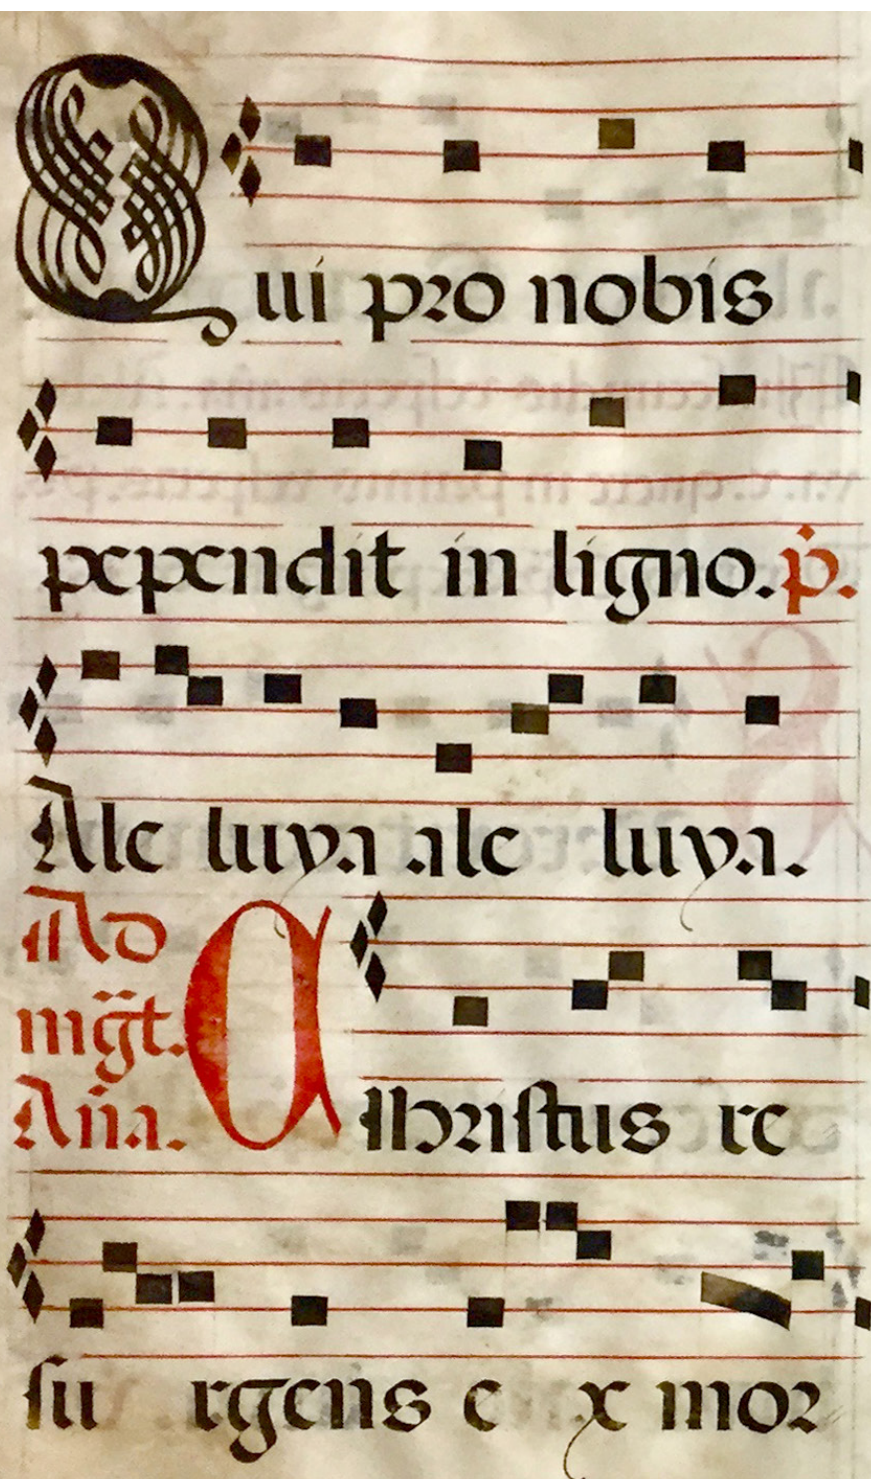 Qui pro nobis
pependit in ligno. p.
Ale luya ale luya.
Ad
mgt.
Aña.
Christus re
su rgens e x mor